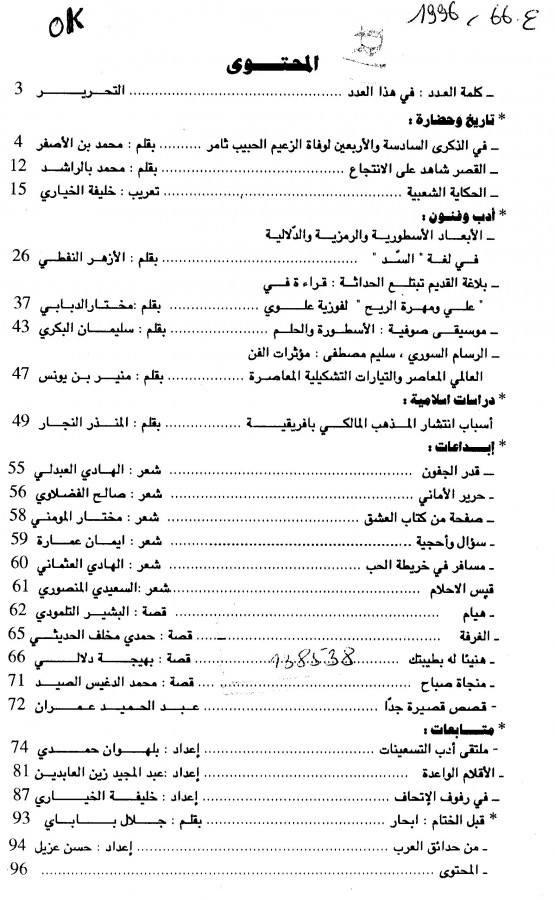 OK
1996 , 66.ع
المحتوى
ـ كلمة العدد : في هذا العدد .......... التحرير 3
* تاريخ وحضارة :
ـ في الذكرى السادسة والأربعين لوفاة الزعيم الحبيب ثامر .......... بقلم : محمد بن الأصفر 4
ـ القصر شاهد على الانتجاع .......... بقلم : محمد بالراشد 12
ـ الحكاية الشعبية .......... تعريب : خليفة الخياري 15
* أدب وفنون :
ـ الأبعاد الأسطورية والرمزية والدّلالية
في لغة " السّد " .......... بقلم : الأزهر النفطي 26
ـ بلاغة القديم تبتلع الحداثة : قراءة في
" علي ومهرة الريح " لفوزية علوي .......... بقلم :مختار الدبابي 37
ـ موسيقى صوفية : الأسطورة والحلم .......... بقلم : سليمان البكري 43
ـ الرسام السوري ، سليم مصطفى : مؤثرات الفن
العالمي المعاصر والتيارات التشكيلية المعاصرة .......... بقلم : منير بن يونس 47
* دراسات اسلامية :
أسباب انتشار المذهب المالكي بافريقية .......... بقلم : المنذر النجار 49
* إبداعات :
ـ قدر الجفون .......... شعر : الهادي العبدلي 55
ـ حرير الأماني .......... شعر : صالح الفضلاوي 56
ـ صفحة من كتاب العشق .......... شعر : مختار المومني 58
ـ سؤال وأحجية .......... شعر : ايمان عمارة 59
ـ مسافر في خريطة الحب .......... شعر : الهادي العثماني 60
قبس الاحلام .......... شعر :السعيدي المنصوري 61
ـ هيام .......... قصة : البشير التلمودي 62
ـ الغرفة .......... قصة : حمدي مخلف الحديثي 65
ـ هنيئا له بطيبتك .......... قصة : بهيجة دلالي 66
138538
ـ منجاة صباح .......... قصة : محمد الدغيس الصيد 71
- قصص قصيرة جدّا .......... عبد الحميد عمران 72
* متابعات :
- ملتقى أدب التسعينات .......... إعداد : بلهوان حمدي 74
ـ الأقلام الواعدة .......... إعداد :عبد المجيد زين العابدين 81
ـ في رفوف الإتحاف .......... إعداد : خليفة الخياري 87
* قبل الختام : ابحار .......... بقلم : جلال باباي 93
ـ من حدائق العرب .......... إعداد : حسن عزيل 94
ـ المحتوى .......... 96